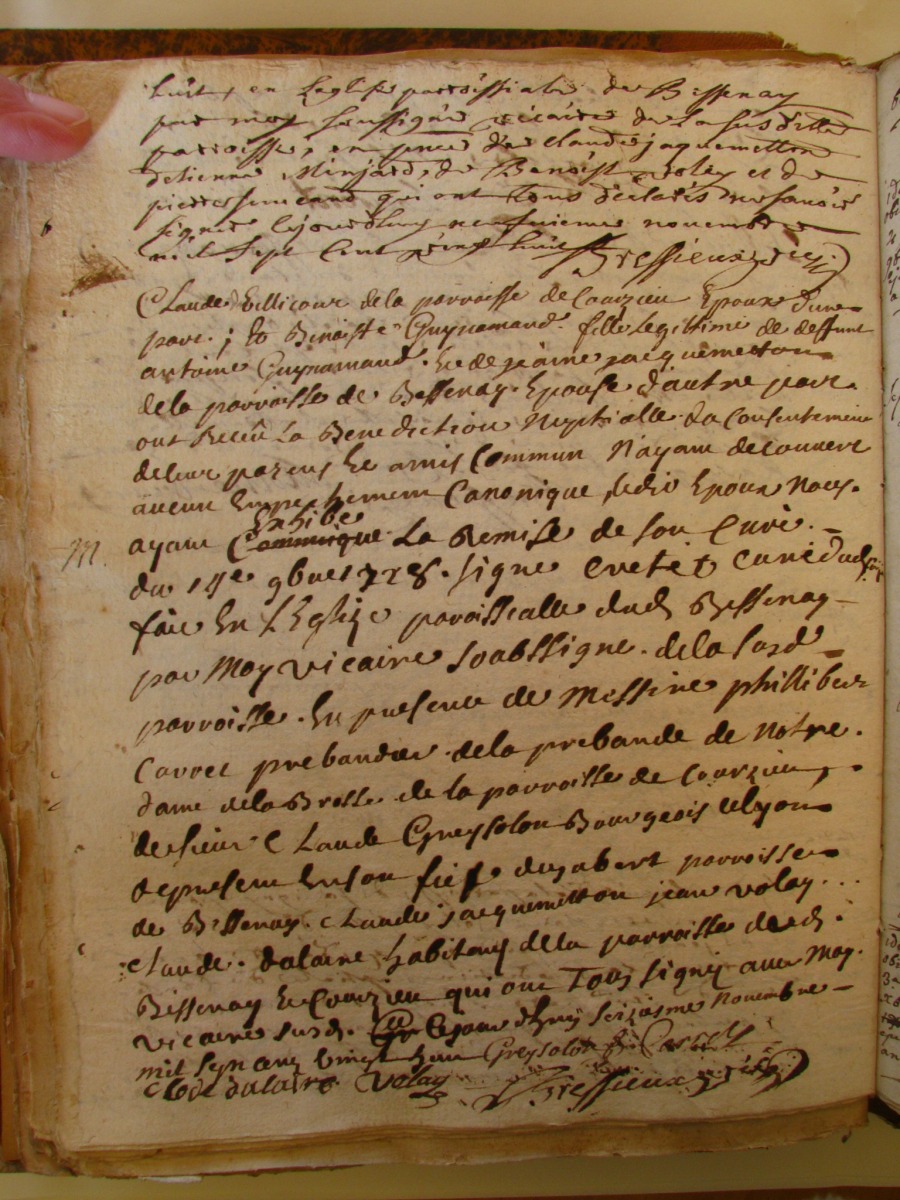 huit, en Leglise parroissiale de Bessenay
par moy soussigné vicaire de La susditte
parroisse, en pnce de claude jaquemetton
detienne Minjard, de Benoist voley et de
pierre qui ont tous déclarés ne sçavoir
signer cejourdhuy neufuieme novembre
mil sept cent vingt huit Bressieux vicaire
Claude Villicour de la parroisse de Courzieu Epoux d'une
part ; Et Benoiste Guynamand fille Legitime de deffunt
antoine Guynamand. Et de jeanne jacquemetton
de la parroisse de Bessenay. Epouse d'autre part.
ont Receu La Benediction Nuptialle du Consentement
de leur parens Et amis Commun N'ayant decouvert
aucun Empechement Canonique, ledit Epoux Nous.
Exhibe
M. ayant Communique La Remise de son Curé.
du 15e 9bre 1728. signe cretet curé dud
fait En L'Eglize paroissialle dud Bessenay
par Moy vicaire soubssigne. de la susd
parroisse. En presence de Messire phillibert
Carret prebandier de la prebande de Notre.
dame de la Brosse de la parroisse de Courzieu,
de sieur Claude Greysolon Bourgeois de lyon
de present En son fief du jabert parroisse
de Bessenay. claude jacquemetton jean volay...
claude. dalaire habitans de la parroisse dud.
Bissenay Et Courzieu qui ont Tous signes avec Moy.
vicaire susd. Ce jourdhuy seiziesme Novembre
mil sept cent vingt huit Greysolon Carret
Clode dalaire volay Bressieux vicaire